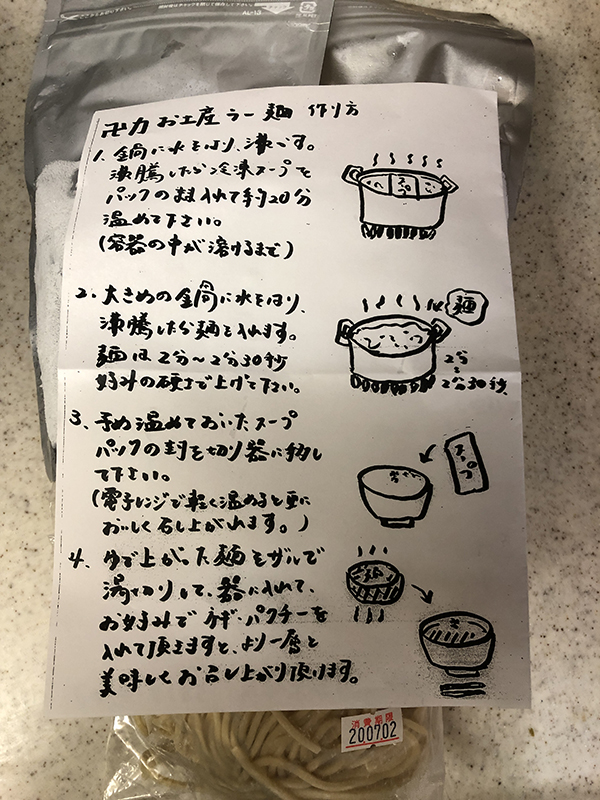 卍力 お土産 ラー麺 作り方
1. 鍋に水をはり、沸かす。
沸騰したら冷凍スープを
パックのまま入れて約20分
温めて下さい。
(容器の中が溶けるまで)
スープ
2. 大きめの鍋に水をはり、
沸騰したら麺を入れます。
麺は2分〜2分30秒
好みの硬さで上げて下さい。
麺
2分
〜
2分30秒
3. 予め温めておいたスープ
パックの封を切り器に移し
て下さい。
(電子レンジで軽く温めると更に
おいしく召し上がれます。)
スープ
4. ゆで上がった麺をザルで
湯切りして、器に入れて、
お好みでネギ・パクチーを
入れて頂きますと、より一層と
美味しくお召し上がり頂けます。
消費期限
200702